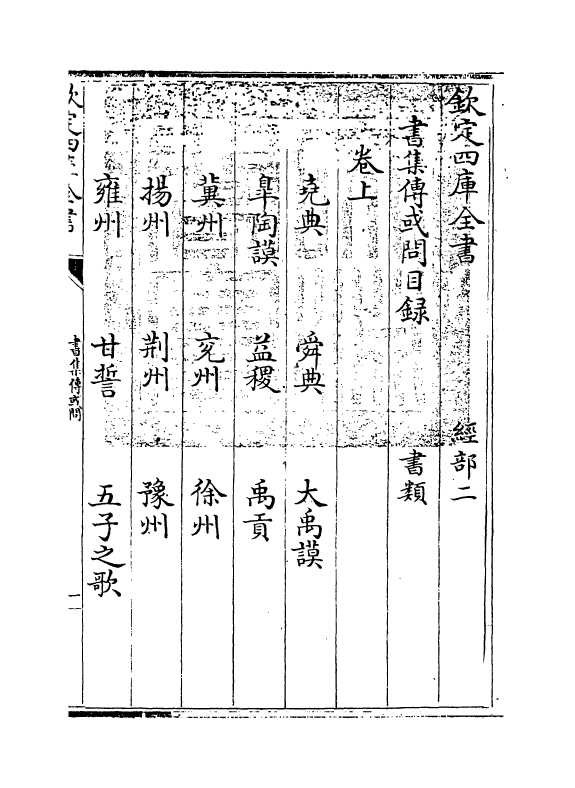 欽定四庫全書　經部二
書集傳或問目録　書類
卷上
堯典　舜典　大禹謨
臯陶謨　益稷　禹貢
冀州　兖州　徐州
揚州　荆州　豫州
雍州　甘誓　五子之歌
欽定四庫全書　書集傳或問　一